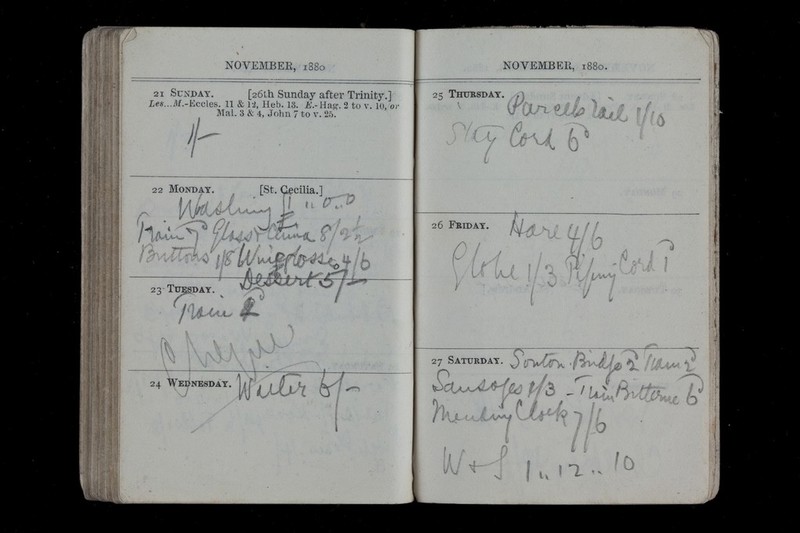 NOVEMBER, 1880
21 SUNDAY. [26th Sunday after Trinity.]
Les...M.-Eccles. 11 & 12, Heb. 13. E.-Hag. 2 to v. 10, or
Mal. 3 & 4, John 7 to v. 25.
1/-
22 MONDAY. [St. Cecilia.]
Washing £1 " 0 .. 0
Train Glass & China 8/2½
Buttons 1/8 Wineglosses 4/6
Dessert 5/-
23 TUESDAY.
Train
Cheque
24 WEDNESDAY. Waiter 6/-
NOVEMBER, 1880.
25 THURSDAY. Parcells 1/10
Stay Cord 6d
26 FRIDAY. Hare 4/6
Globe 1/3 Piping Cord 1d
27 SATURDAY. Sonton Bridge 2d Tram 2d
Sausages 1/3 - Train Bitterne 6d
Mending Clock 7/6
W & S 1 .. 12 .. 10